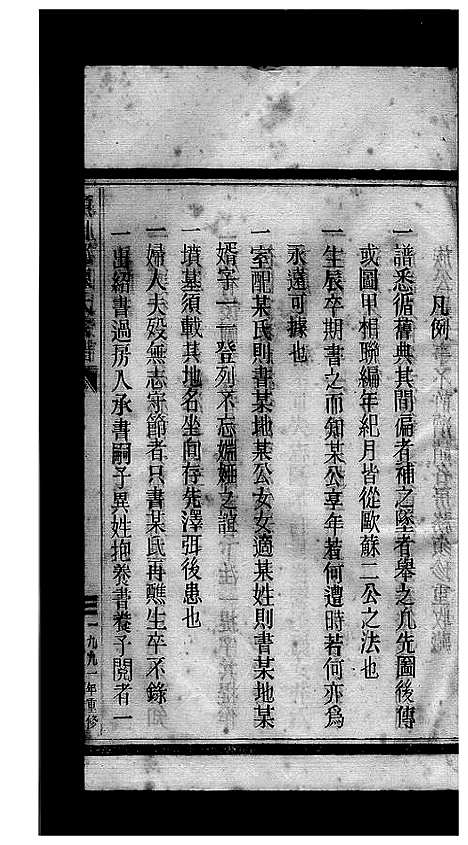 凡例
一譜悉循舊典其間偏者補之墜者舉之凡先圖後傳
或圖甲相聯編年紀月皆從歐蘇二公之法也
一生辰卒期書之而知某公享年若何遭時若何亦為
永遠可據也
一室配某氏則書某地某公女女適某姓則書某地某
婿字一一登列不忘婣婭之誼
一墳墓須載其地名坐向存先澤弭後患也
一婦人夫歿無志守節者只書某氏再醮生卒不錄
一出紹書過房入承書嗣子異姓抱養書養子閱者一
一九九一年重修